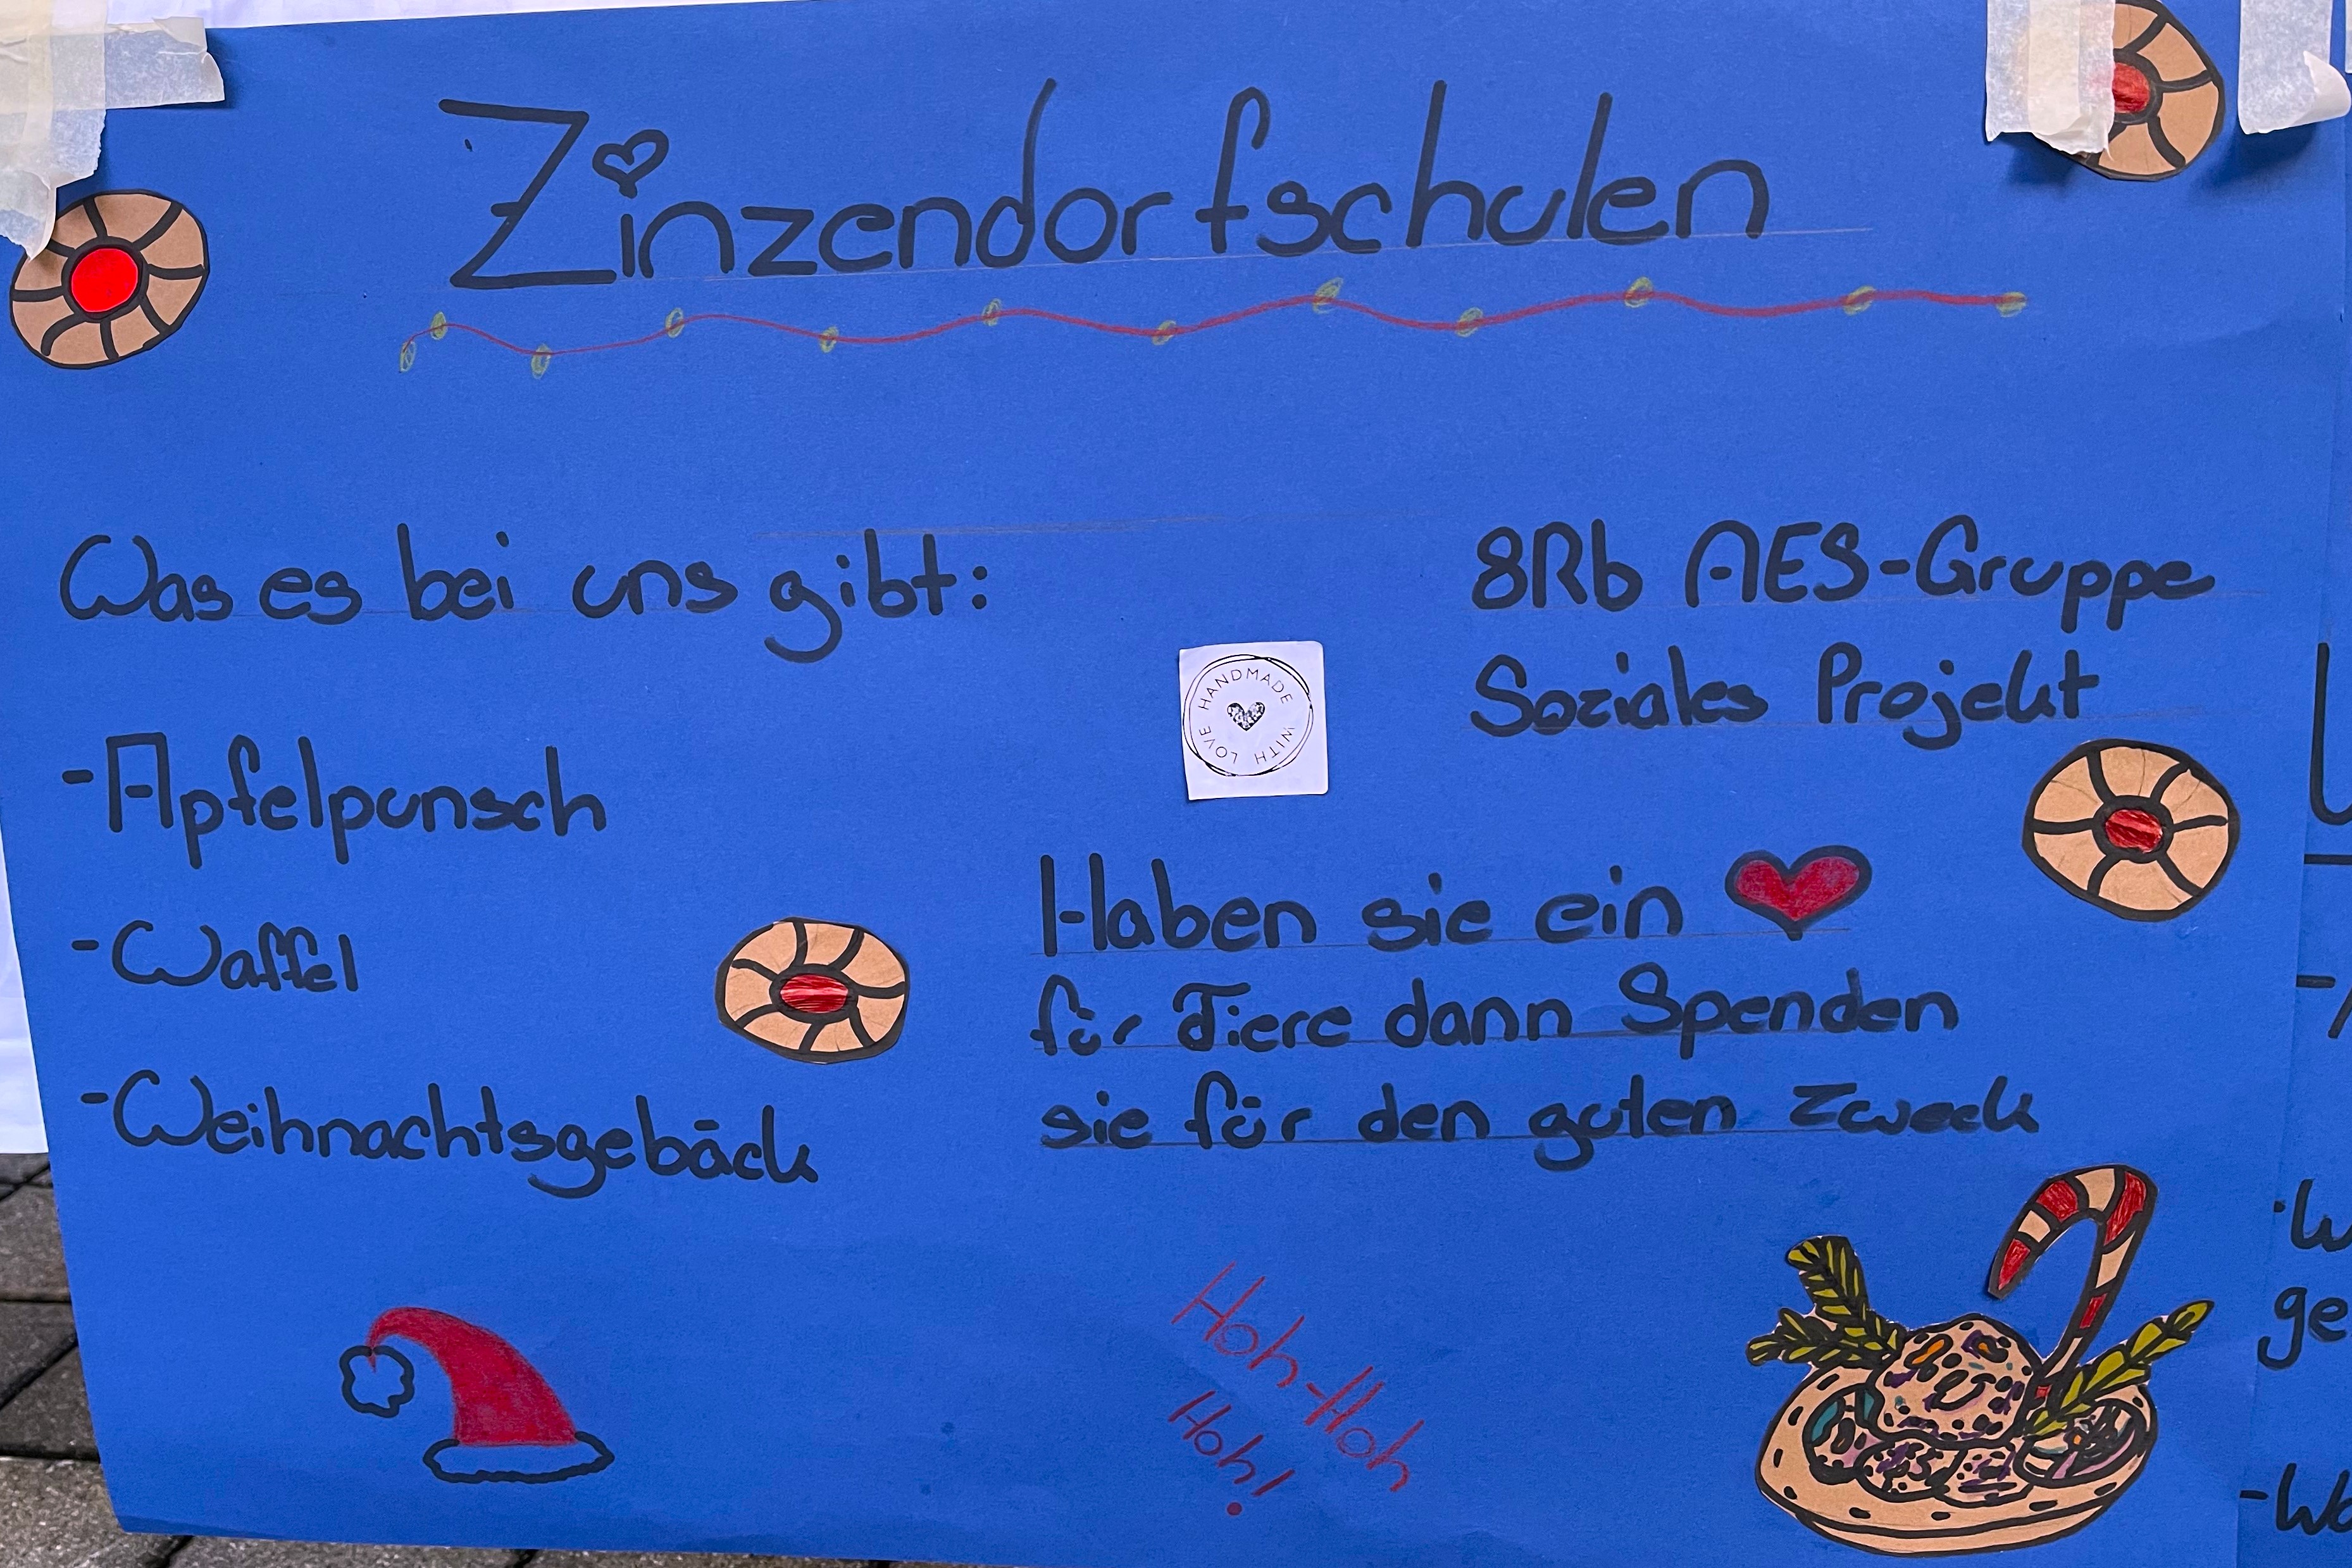 Zinzendorfschulen
Was es bei uns gibt:
-Apfelpunsch
-Waffel
-Weihnachtsgebäck
8Rb AES-Gruppe
Soziales Projekt
HANDMADE
WITH LOVE
Haben sie ein ♥
für Tiere dann Spenden
sie für den guten Zweck
Hoh-Hoh
Hoh!